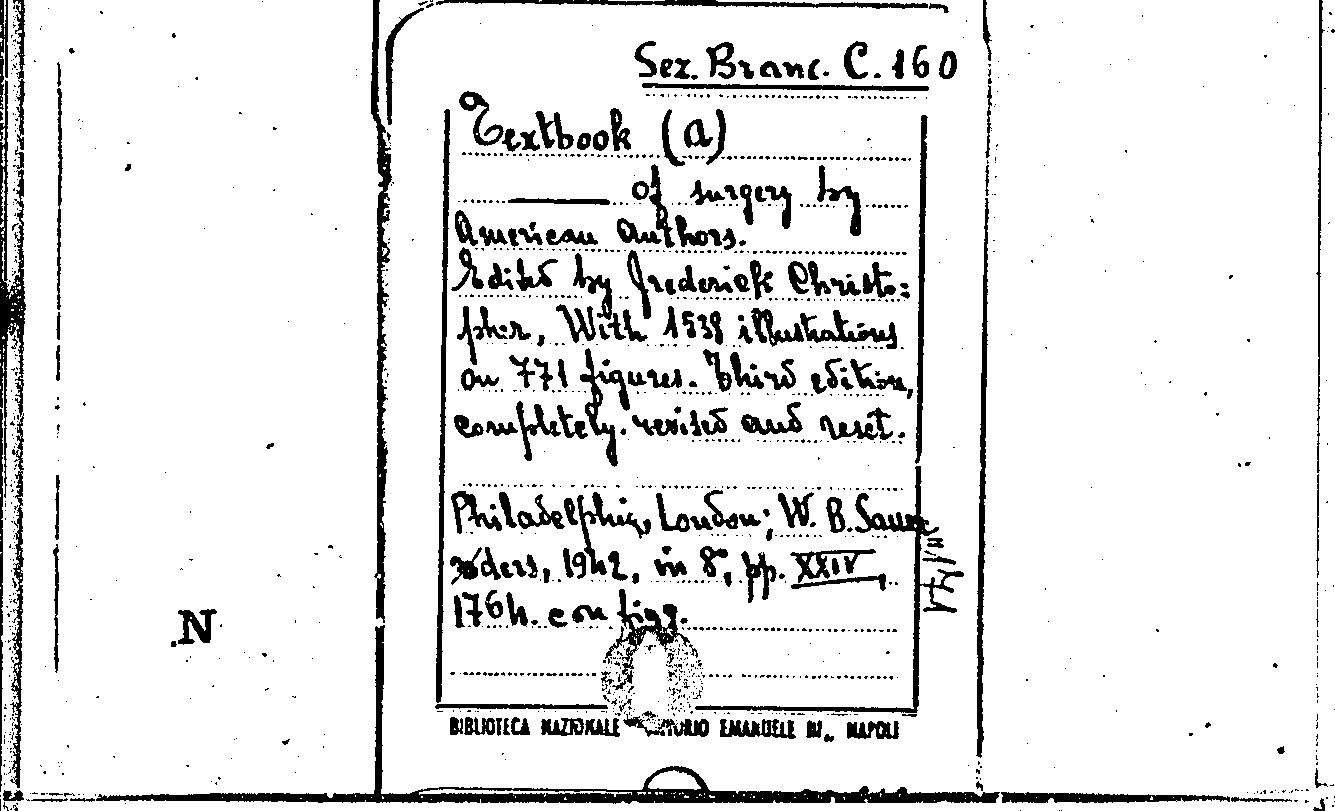 Sez. Branc. C. 160
Textbook (a)
——— of surgery by
American Authors.
Edited by Frederick Christo=
pher, With 1538 illustrations
on 771 figures. Third edition,
completely. revised and reset.
Philadelphia, London; W. B. Saun
ders, 1942, in 8°, pp. XXIV,
1764. con figg.
N
BIBLIOTECA NAZIONALE EMANUELE III., NAPOLI